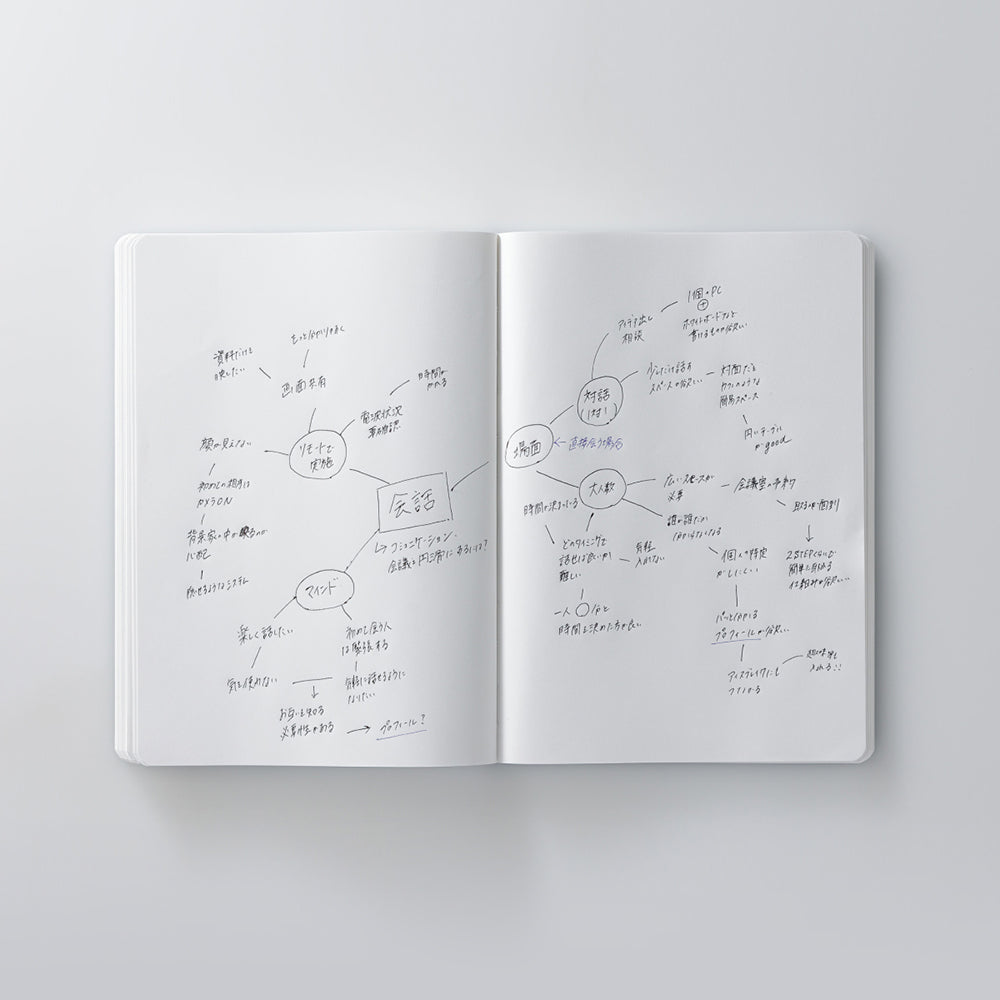 もっと分かりやすく
資料だけを
映したい
画面共有
時間が
かかる
電波状況
顔が見えない
リモートで
実施
初めての相手は
背景家の中が映るのが
心配
隠せるようなシステム
会話
↳ コミュニケーション、
会議を円滑にするには?
マインド
楽しく話したい
初めて会う人
は緊張する
気を使わない
気軽に話せるように
なりたい
お互いを知る
必要性がある
→ プロフィール?
1個のPC
+
ホワイトボードなど
書けるものが欲しい
アイデア出し
相談
少しだけ話す
スペースが欲しい
対面だと
カフェのような
簡易スペース
円いテーブル
がgood
対話
(1対1
場面
← 直接会う場合
大人数
広いスペースが
必要
会議室の予約
時間が決まっている
誰が誰だか
分からなくなる
どのタイミングで
話せば良いか
難しい
一人○分と
時間を決めた方が良い
個人の特定
がしにくい
2STEPくらいで
簡単に
仕組みが欲しい
パッと分かる
プロフィールが欲しい
アイスブレイクにも
つながる